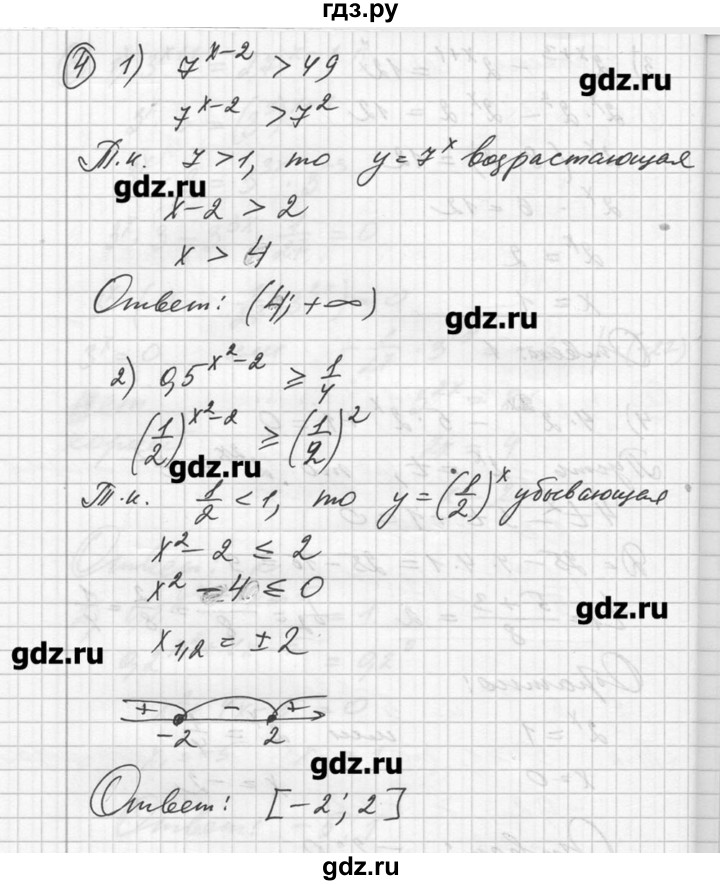 гдз.ру
④ 1) 7^(x-2) > 49
gdz.ru
7^(x-2) > 7^2
Т.к. 7 > 1, то y = 7^x возрастающая
gdz.ru
x - 2 > 2
x > 4
Ответ: (4; +∞)
gdz.ru
2) 0,5^(x^2-2) ≥ 1/4
(1/2)^(x^2-2) ≥ (1/2)^2
gdz.ru
Т.к. 1/2 < 1, то y = (1/2)^x убывающая
x^2 - 2 ≤ 2
x^2 - 4 ≤ 0
gdz.ru
x_1,2 = ± 2
gdz.ru
+ - +
-2 2
gdz.ru
Ответ: [-2; 2]
gdz.ru